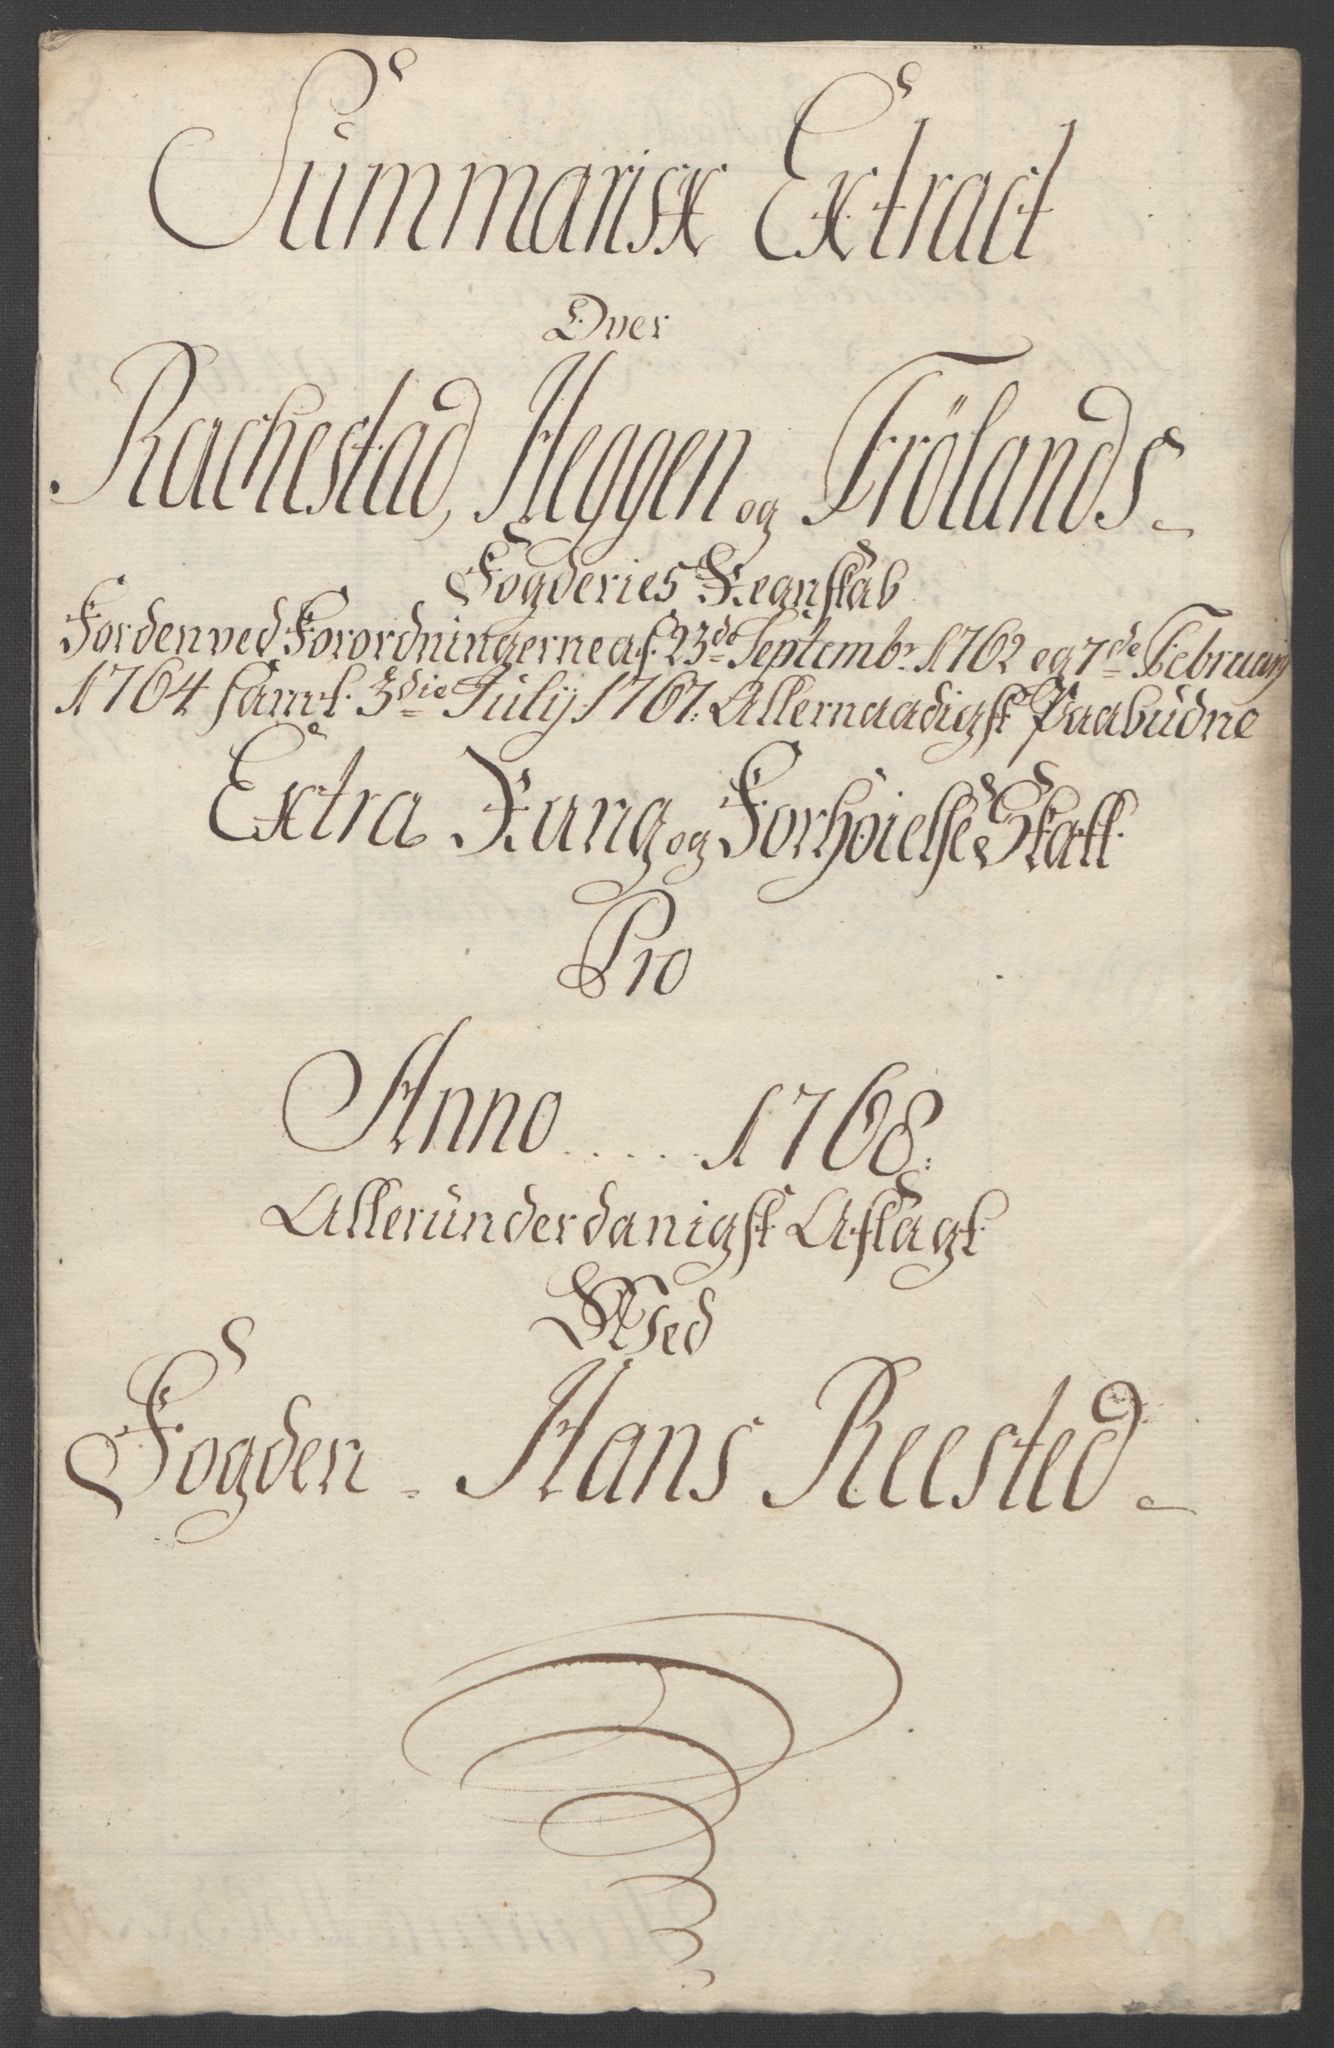 Summarisk Extract
Over
Rachestad, Heggen og Frölands
Fogderies Regnskab
For den ved Forordningerne af 23de Septembr 1762 og 7de Februarij
1764 samt 3die Julij 1767: Allernaadigst Paabudne
Extra Rang og Forhøielse Skatt
Pro
Anno .... 1768:
Alleründerdanigst Aflagt
Med
Fogden - Hans Reested